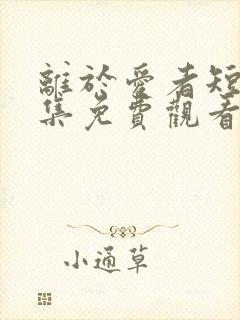 離於愛者短
集免費觀看
小通草